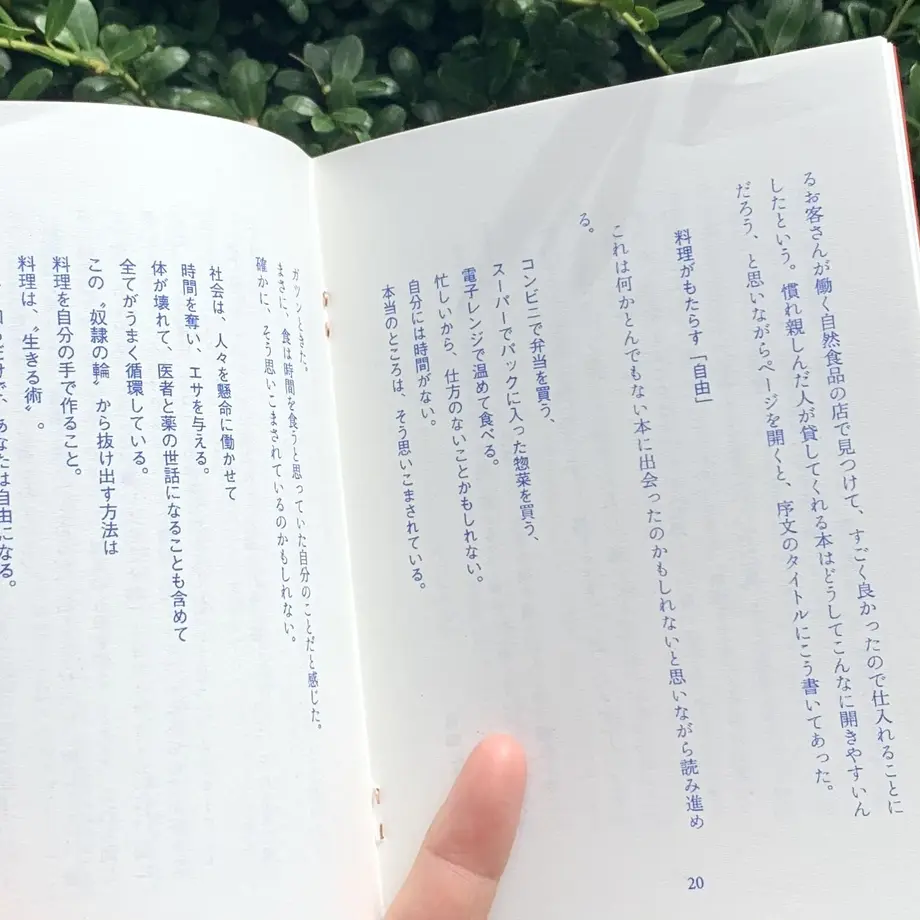 るお客さんが働く自然食品の店で見つけて、すごく良かったので仕入れることに
したという。慣れ親しんだ人が貸してくれる本はどうしてこんなに開きやすいん
だろう、と思いながらページを開くと、序文のタイトルにこう書いてあった。
料理がもたらす「自由」
これは何かとんでもない本に出会ったのかもしれないと思いながら読み進め
る。
コンビニで弁当を買う、
スーパーでパックに入った惣菜を買う、
電子レンジで温めて食べる。
忙しいから、仕方のないことかもしれない。
自分には時間がない。
本当のところは、そう思いこまされている。
20
ガツンときた。
まさに、食は時間を食うと思っていた自分のことだと感じた。
確かに、そう思いこまされているのかもしれない。
社会は、人々を懸命に働かせて
時間を奪い、エサを与える。
体が壊れて、医者と薬の世話になることも含めて
全てがうまく循環している。
この〝奴隷の輪〟から抜け出す方法は
料理を自分の手で作ること。
料理は、〝生きる術〟。
あなたは自由になる。